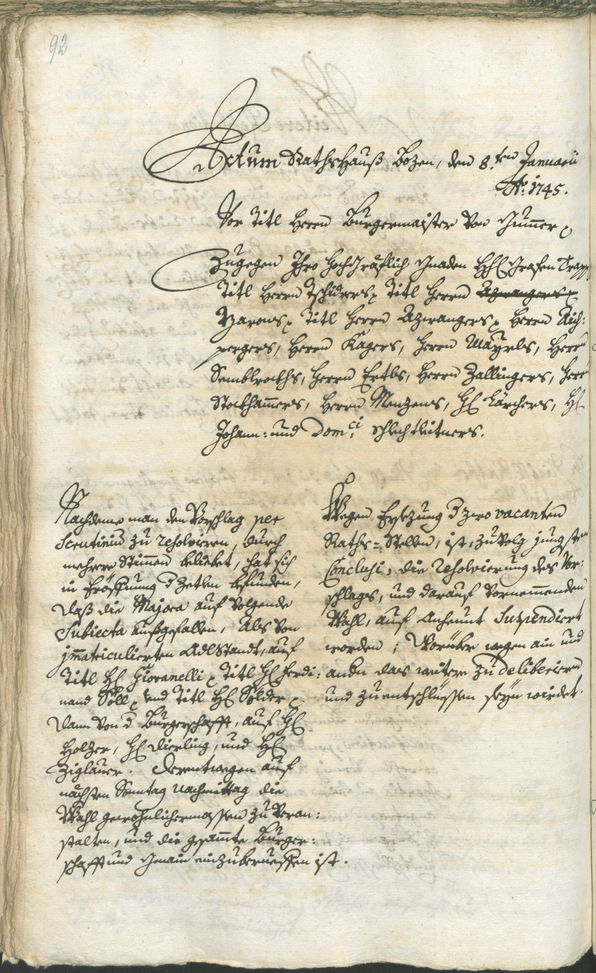 92
Actum Rathshauß Bozen, den 8.ten Januarii
Ao. 1745.
Vor Titl Herrn Burgermaister von
Zugegen Ihro Hochgräflich Gnaden Grafen
Titl Herrn Titl Herrn
Titl Herrn Azwangers, Herrn
pergers, Herrn Kagers, Herrn Mayrls, Herrn
Semblroths, Herrn Ertls, Herrn Zallingers, Herrn
Stockhamers, Herrn Menzens, HE Kärchers, HE
Johann: und Dom:ci Schlechtleitners.
Nachdeme man den Vorschlag per
Scrutinium zu resolvieren, durch
mehrere Stimen beliebet, hat sich
in Eröffnung d Zetlen befunden,
daß die Majora auf volgende
Subiecta außgefallen, als von
jmatriculierten Adlstandt, auf
Titl HE Giovanelli, Titl HE Ferdi:
nand Söll, und Titl HE
dann von d Burgerschafft, auf HE
Holzer, HE Dierling, und HE
Ziglauer. Derentwegen auf
nächsten Sontag nachmittag die
Wahl gewohnlichermassen zu veran:
stalten, und die gesamte Burger:
schafft und Gemain einzuberueffen ist.
Wegen Ersezung d zwo vacanten
Raths-Stellen, ist, zuvolg jungsten
Conclusi, die Resolvierung des Vor:
schlages, und darauf vornemmenden
Wahl, auf anheunt suspendiert
worden; Worüber wegen ain und
andn das weitere zu deliberieren
und zu entschliessen seyn wirdet.